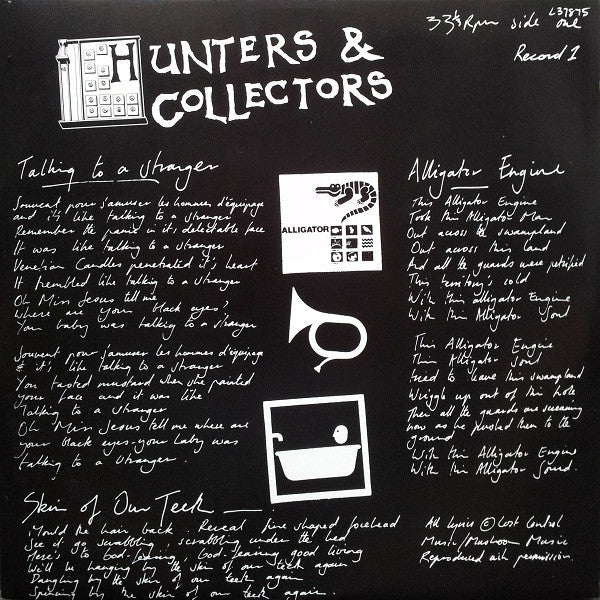 L37875
33⅓ Rpm side one
Record 1
HUNTERS &
COLLECTORS
Talking to a stranger
Souvent pour s'amuser les hommes d'équipage
and it's like talking to a stranger
Remember the panic in its delectable face
It was like talking to a stranger
Venetian Candles penetrated it's heart
It trembled like talking to a stranger
Oh Miss Jesus tell me
where are your black eyes,
Your baby was talking to a stranger
Souvent pour s'amuser les hommes d'équipage
& it's like talking to a stranger
You tasted mustard when she painted
your face and it was like
Talking to a stranger
Oh Miss Jesus tell me where are
your black eyes - your baby was
talking to a stranger.
ALLIGATOR
Alligator Engine
This Alligator Engine
Took this Alligator Man
Out across the swampland
Out across this land
And all the guards were petrified
This territory's cold
With this alligator Engine
With this Alligator Soul
This Alligator Engine
This Alligator Soul
tried to leave this swampland
Wriggle up out of this hole
Then all the guards are screaming
how as he pushed them to the
ground
With this Alligator Engine
With this Alligator Sound.
Skin of Our Teeth
Mould the hair back. Reveal fine shaped forehead
See it go scrabbling, scrabbling under the bed
Here's to God-fearing, God-fearing good living
We'll be hanging by the skin of our teeth again
Dangling by the skin of our teeth again
Spinning by the skin of our teeth again
All lyrics © Lost Control
Music/Mushroom Music
Reproduced with permission.